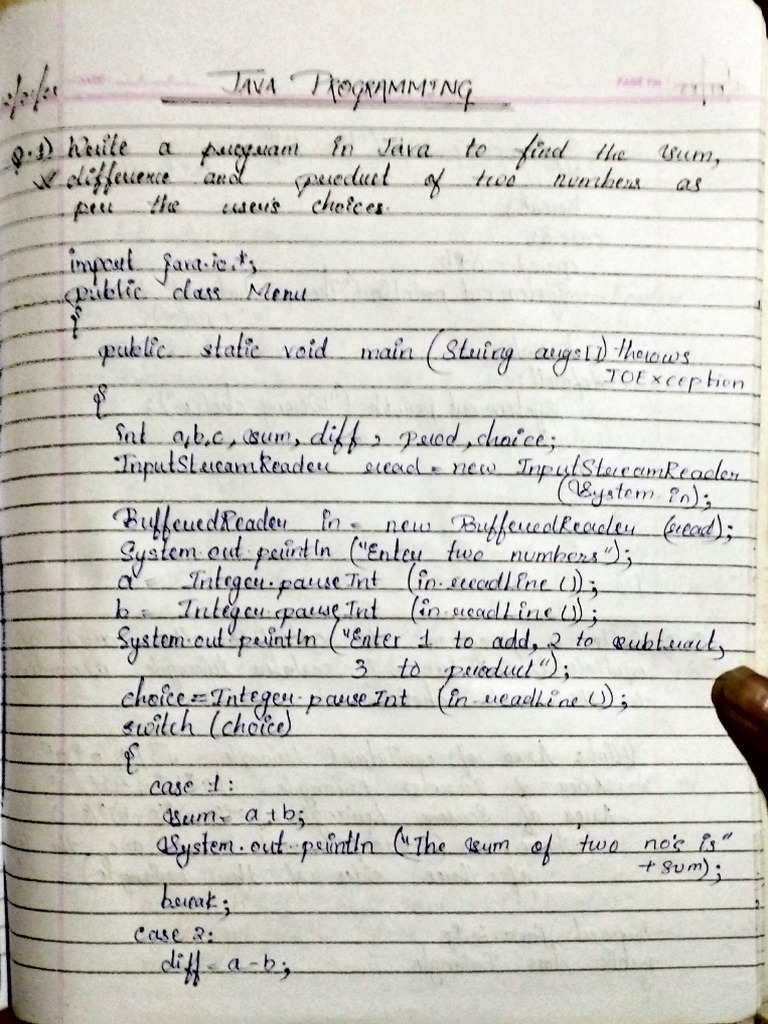 JAVA PROGRAMMING
Q.1) Write a program in Java to find the sum,
difference and product of two numbers as
per the user's choices.
import java.io.*;
public class Menu
{
public static void main (String args[]) throws
IOException
{
int a,b,c, sum, diff, prod, choice;
InputStreamReader read = new InputStreamReader
(System.in);
BufferedReader in = new BufferedReader (read);
System.out.println ("Enter two numbers");
a = Integer.parseInt (in.readLine());
b = Integer.parseInt (in.readLine());
System.out.println ("Enter 1 to add, 2 to subtract,
3 to product");
choice = Integer.parseInt (in.readLine());
switch (choice)
{
case 1:
sum = a+b;
System.out.println ("The sum of two no's is"
+ sum);
break;
case 2:
diff = a-b;